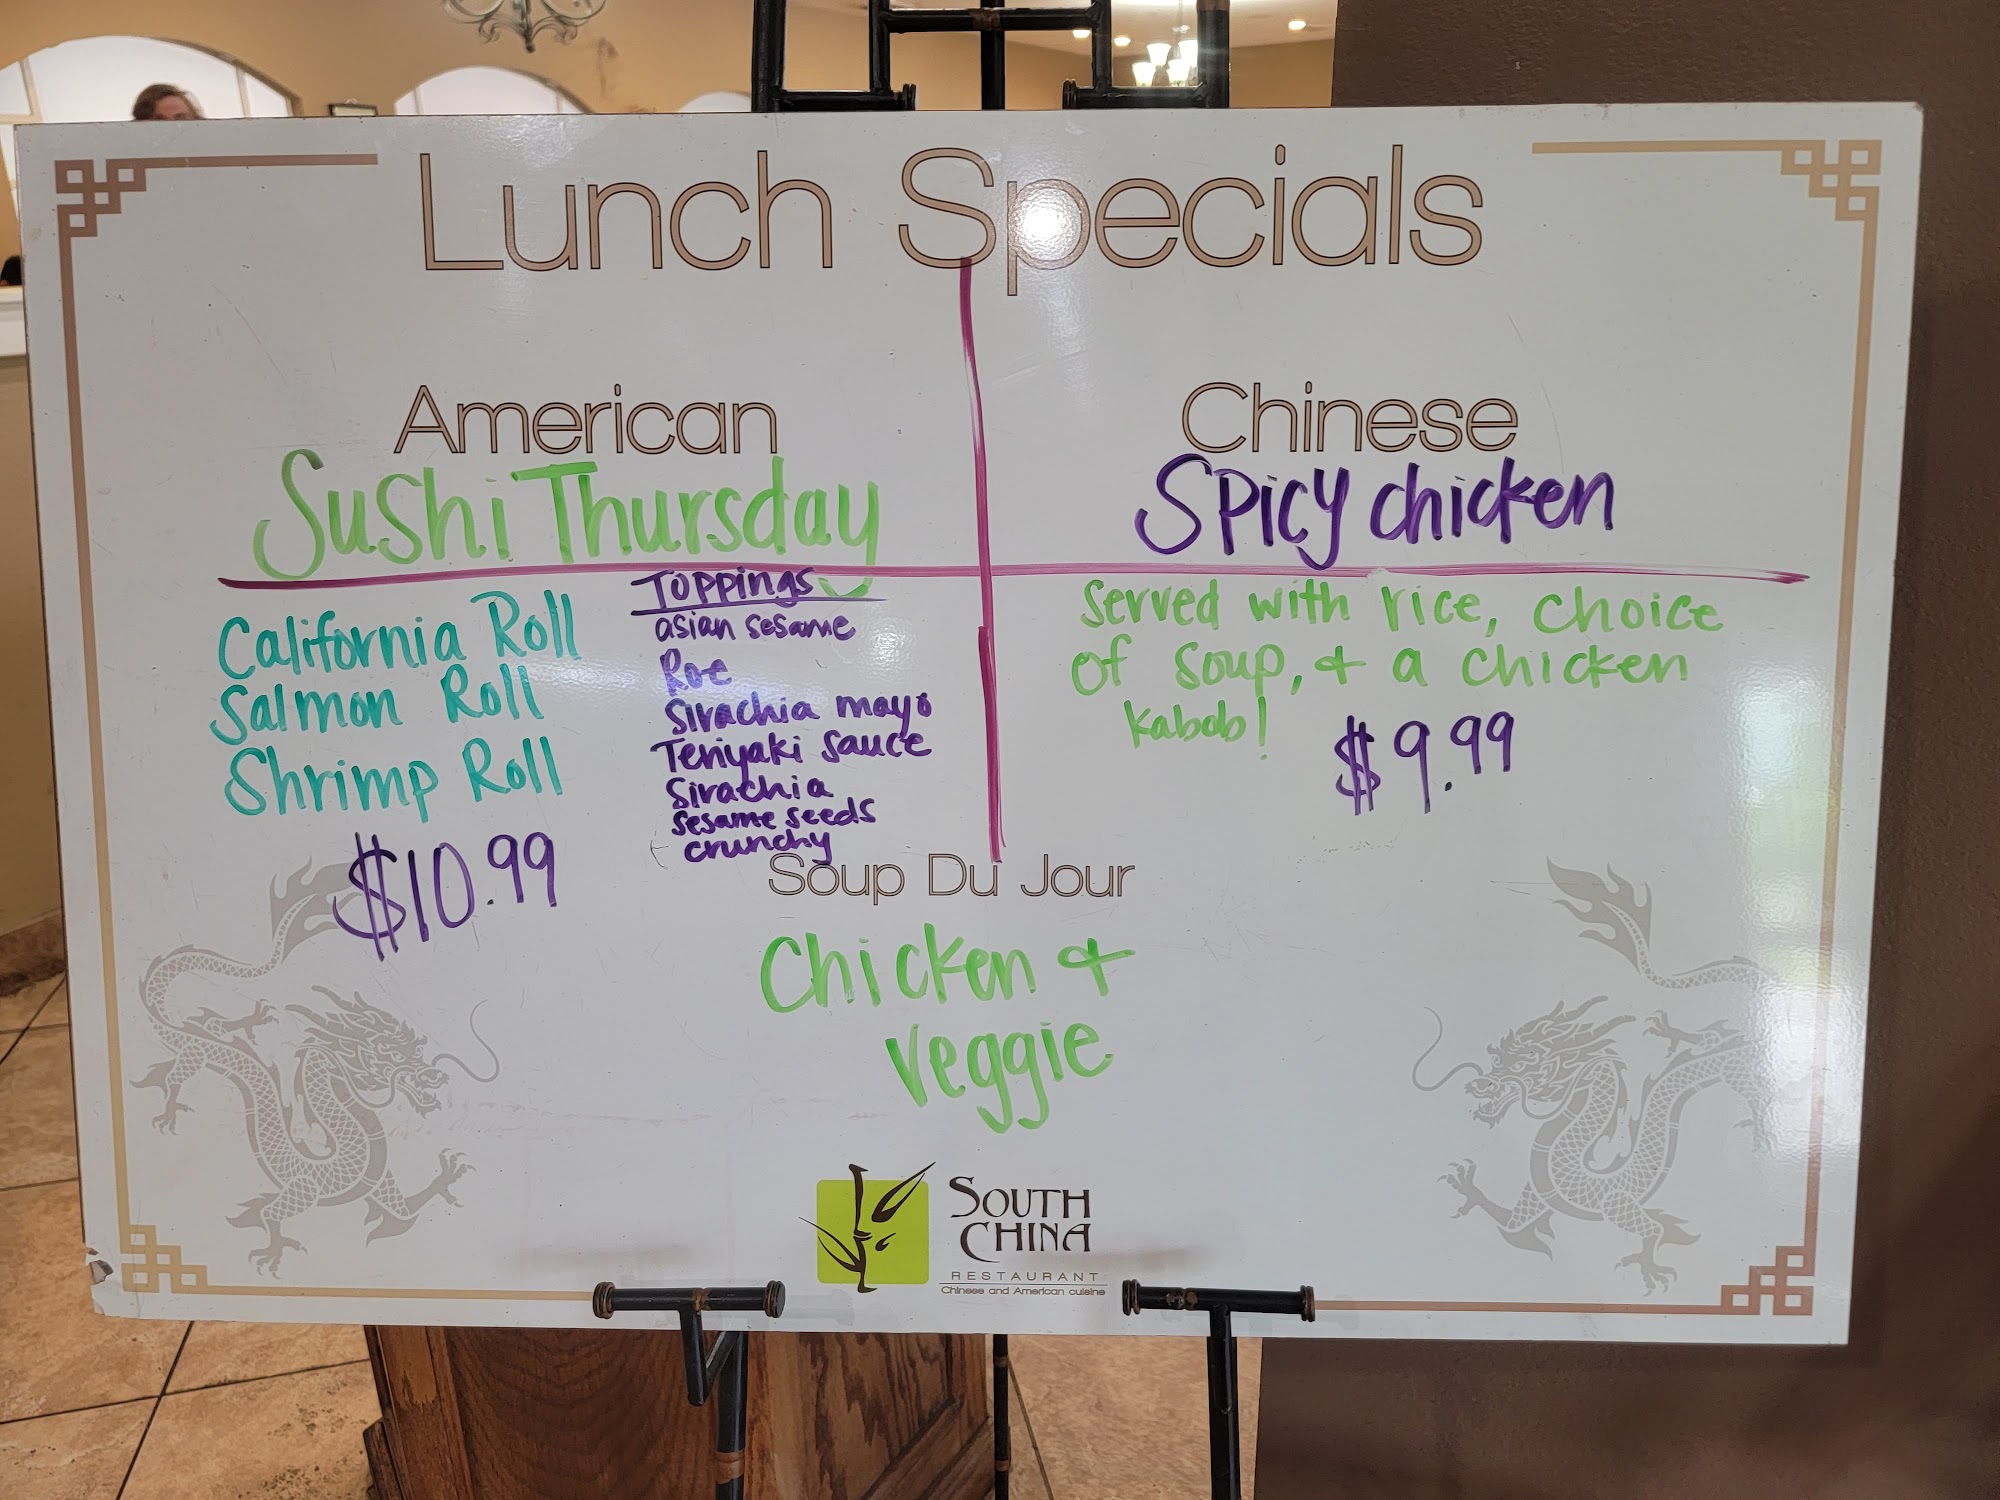 Lunch Specials
American
Sushi Thursday
California Roll
Salmon Roll
Shrimp Roll
$10.99
Toppings
asian sesame
Roe
Sirachia mayo
Teriyaki sauce
Sirachia
sesame seeds
crunchy
Chinese
Spicy chicken
Served with rice, choice
of soup, & a chicken
kabob!
$9.99
Soup Du Jour
Chicken &
veggie
SOUTH
CHINA
RESTAURANT
Chinese and American cuisine